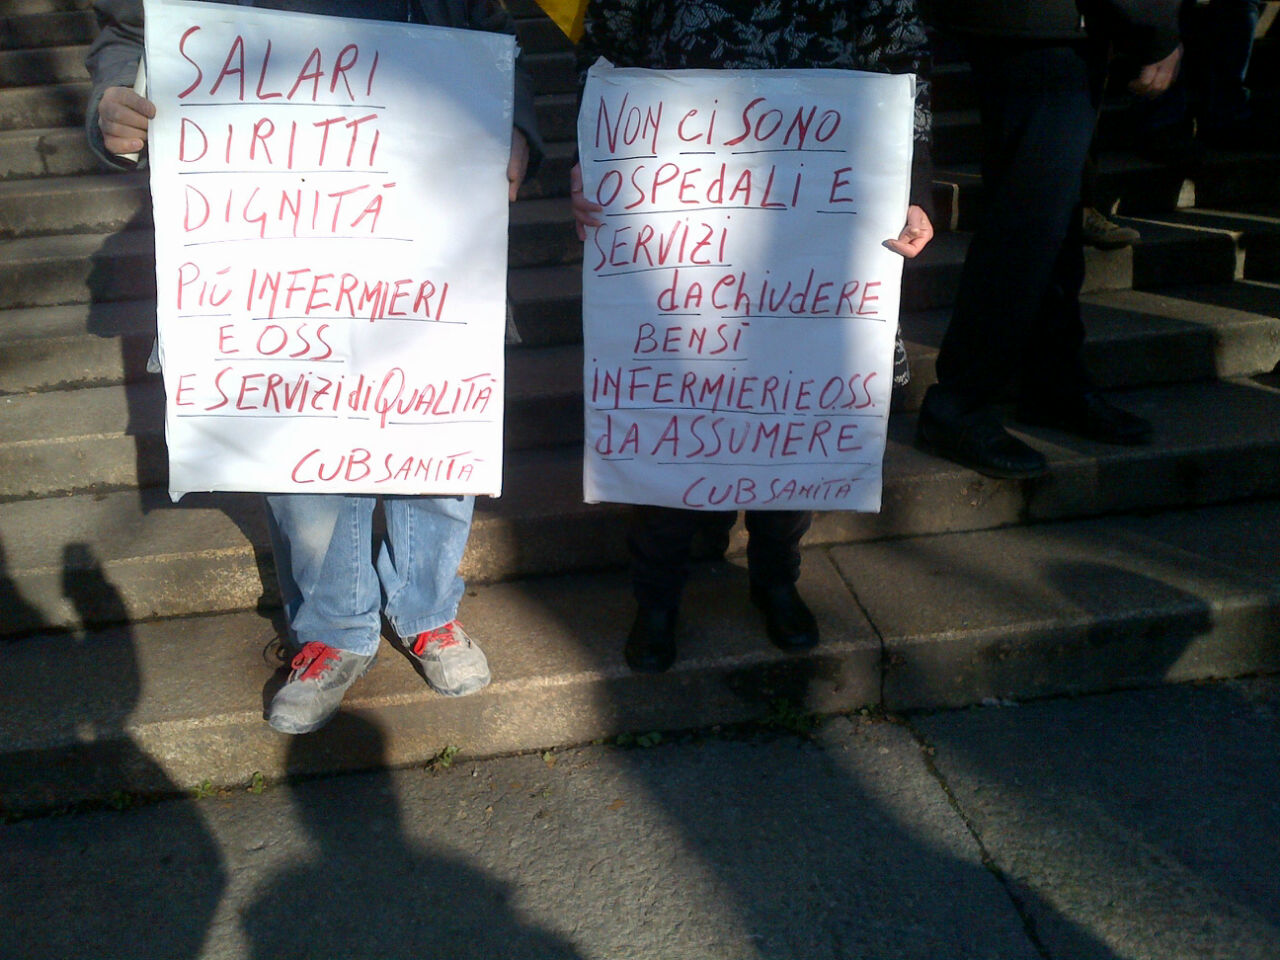 SALARI
DIRITTI
DIGNITÁ
PIÚ INFERMIERI
E OSS
E SERVIZI di QUALITÁ
CUB SANITÁ
NON Ci SONO
OSPEdALi E
SERVIZI
dA ChiUdERE
BENSÌ
iNFERMIERI E O.S.S.
dA ASSUMERE
CUB SANITÁ